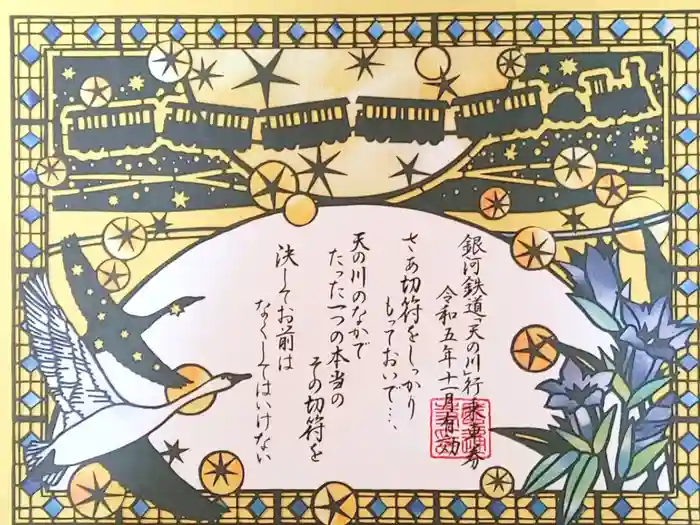 銀河鉄道天の川行乗車券
令和五年十一月有効
さあ切符をしっかり
もっておいで…、
天の川のなかで
たった一つの本当の
その切符を
決してお前は
なくしてはいけない